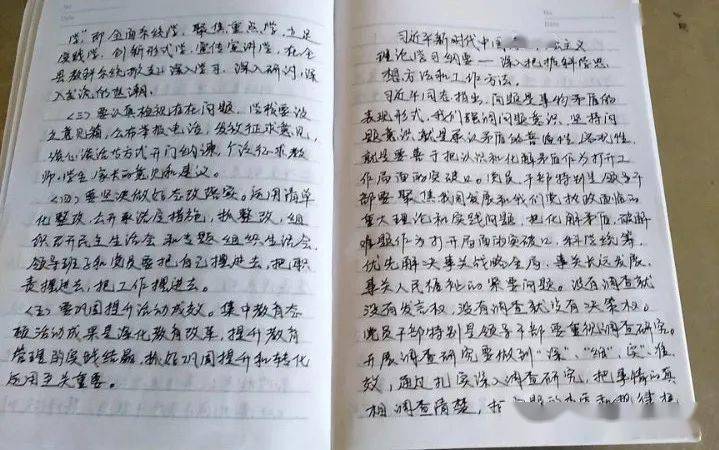 学"即全面系统学，聚焦重点学，立足
实践学，创新形式学，宣传宣讲学，在全
县教科系统掀起深入学习，深入研讨，深
入交流的热潮。
（三）要认真检视存在问题。学校要设
立意见箱，公布举报电话，发放征求意见，
谈心谈话等方式开门纳谏，广泛征求教
师、学生、家长的意见和建议。
（四）要坚决做好整改落实。运用清单
化整改，去开展活度措施，抓整改，组
织召开民主生活会和专题组织生活会，
领导班子和党员要把自己摆进去，把职
责摆进去，把工作摆进去。
（五）要巩固提升活动成效。集中教育整
顿活动成果是深化教育改革，提升教育
管理的实践结晶，抓好巩固提升和转化
运用至关重要。
习近平新时代中国 主义
理论学习纲要——深入把握科学思
想方法和工作方法。
习近平同志指出，问题是事物矛盾的
表现形式，我们强调问题意识、坚持问
题意识，就是承认矛盾的普遍性、客观性，
就是要善于把认识和化解矛盾作为打开工
作局面的突破口。党员、干部特别是领导干
部要聚焦我国发展和我们党执政面临的
重大理论和实践问题，把化解矛盾、破解
难题作为打开局面的突破口，科学统筹，
优先解决事关战略全局、事关长远发展、
事关人民福祉的紧要问题。没有调查就
没有发言权，没有调查就没有决策权。
党员干部特别是领导干部要重视调查研究。
开展调查研究要做到"深"、"细"、实、准、
效，通过扎实深入调查研究，把事情的真
相调查清楚，